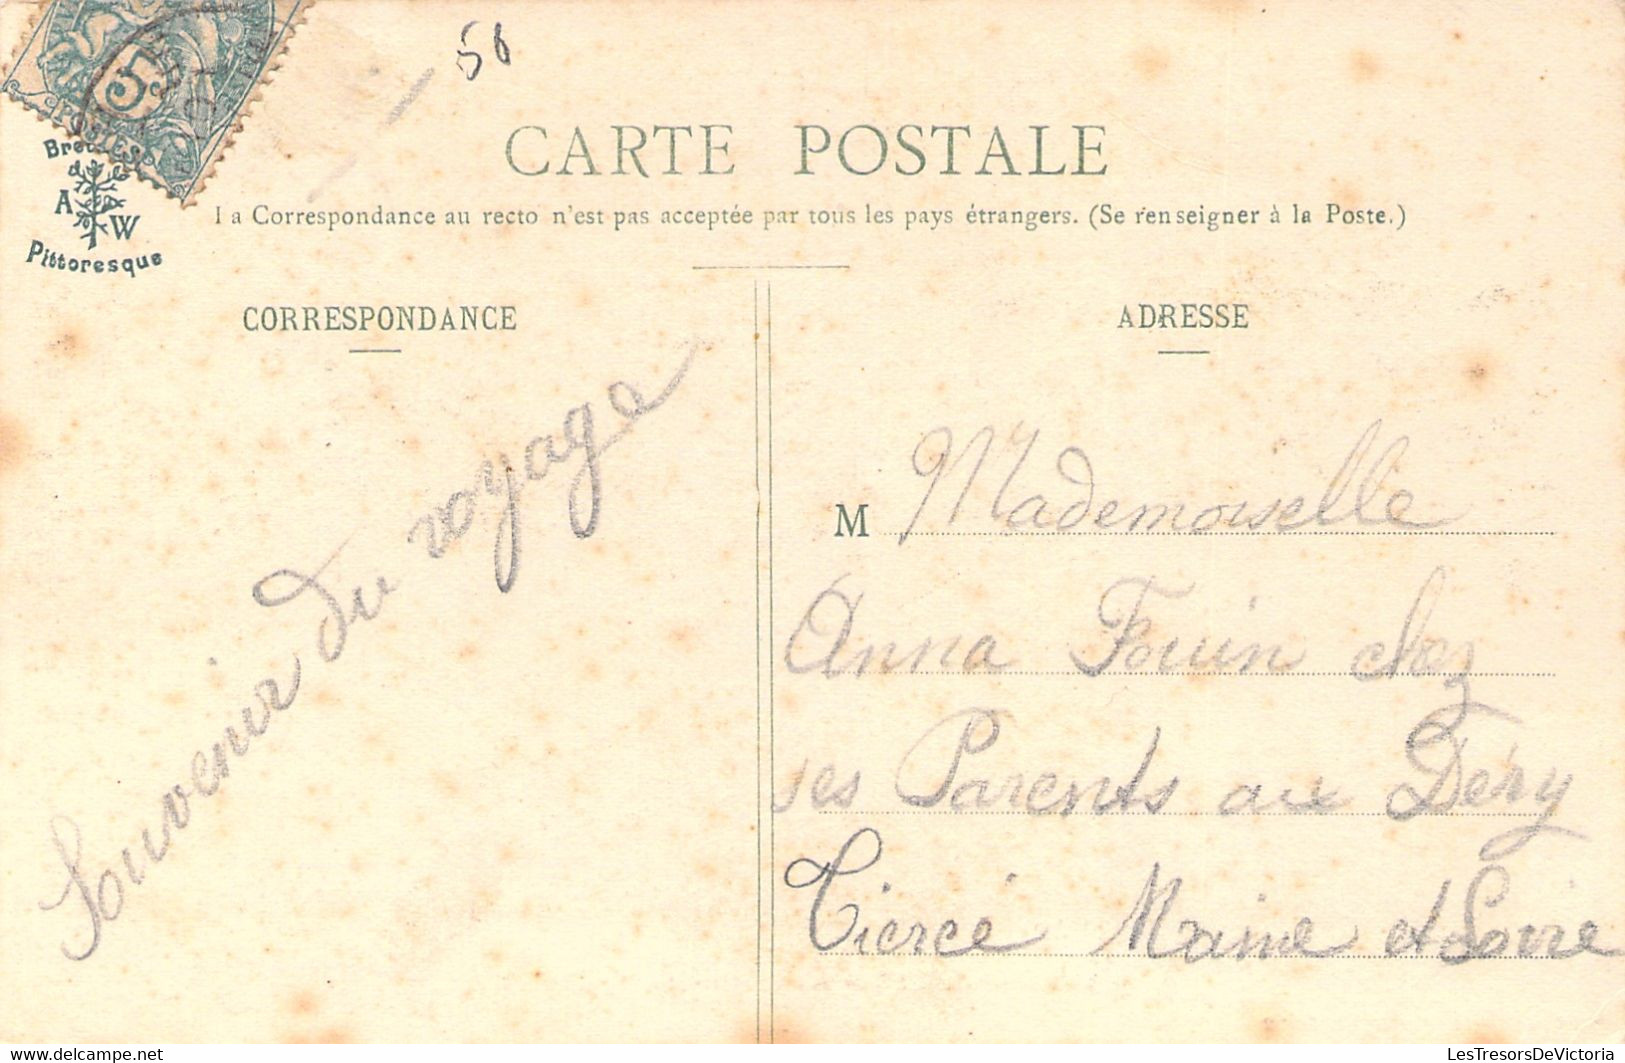 56
5c
POSTES
A W
Pittoresque
CARTE POSTALE
La Correspondance au recto n'est pas acceptée par tous les pays étrangers. (Se renseigner à la Poste.)
CORRESPONDANCE
Souvenir du voyage
ADRESSE
M Mademoiselle
Anna Fouin chez
ses Parents au Dézy
Tiercé Maine et Loire
LesTresorsDeVictoria